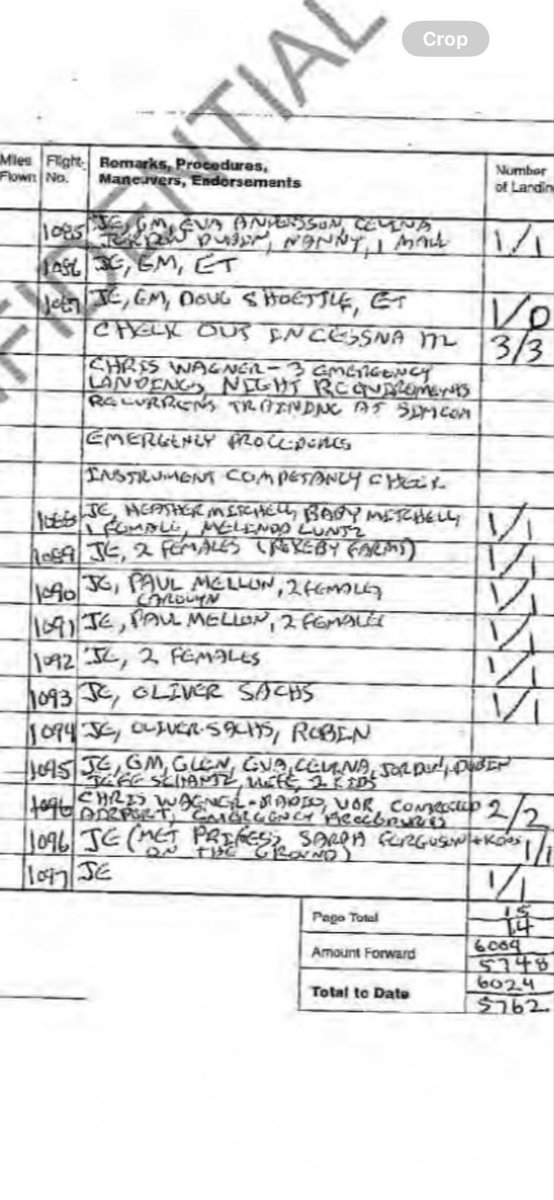 Crop
FIDENTIAL
Miles Flown
Flight No.
Remarks, Procedures, Maneuvers, Endorsements
Number of Landin
1085 JE, GM, EVA ANDERSSON, CELINA
DUBIN, NANNY, 1 MALE 1/1
1086 JE, GM, ET
1087 JE, GM, DOUG SHOETTLE, ET 1/0
CHECK OUT IN CESSNA 3/3
CHRIS WAGNER - 3 EMERGENCY
LANDINGS, NIGHT REQUIREMENTS
TRAINING AT
EMERGENCY PROCEDURES
INSTRUMENT COMPETANCY CHECK
1088 JE, HEATHER MITCHELL, BABY MITCHELL,
1 FEMALE, MELINDA LUNTZ 1/1
1089 JE, 2 FEMALES (ROKEBY FARMS) 1/1
1090 JE, PAUL MELLON, 2 FEMALES
CAROLYN 1/1
1091 JE, PAUL MELLON, 2 FEMALES 1/1
1092 JE, 2 FEMALES 1/1
1093 JE, OLIVER SACHS 1/1
1094 JE, OLIVER SACHS, ROBIN
1095 JE, GM, GLEN, EVA, CELINA, JORDAN, DUBIN
JEFF SCHANTZ, WIFE, 2 KIDS
1096 CHRIS WAGNER - RADIO, VOR, CONTROLLED
AIRPORT, EMERGENCY PROCEDURES 2/2
1096 JE (MET PRINCESS SARAH FERGUSON + KIDS
ON THE GROUND) 1/1
1097 JE 1/1
Page Total 15
14
Amount Forward 6009
5748
Total to Date 6024
5762